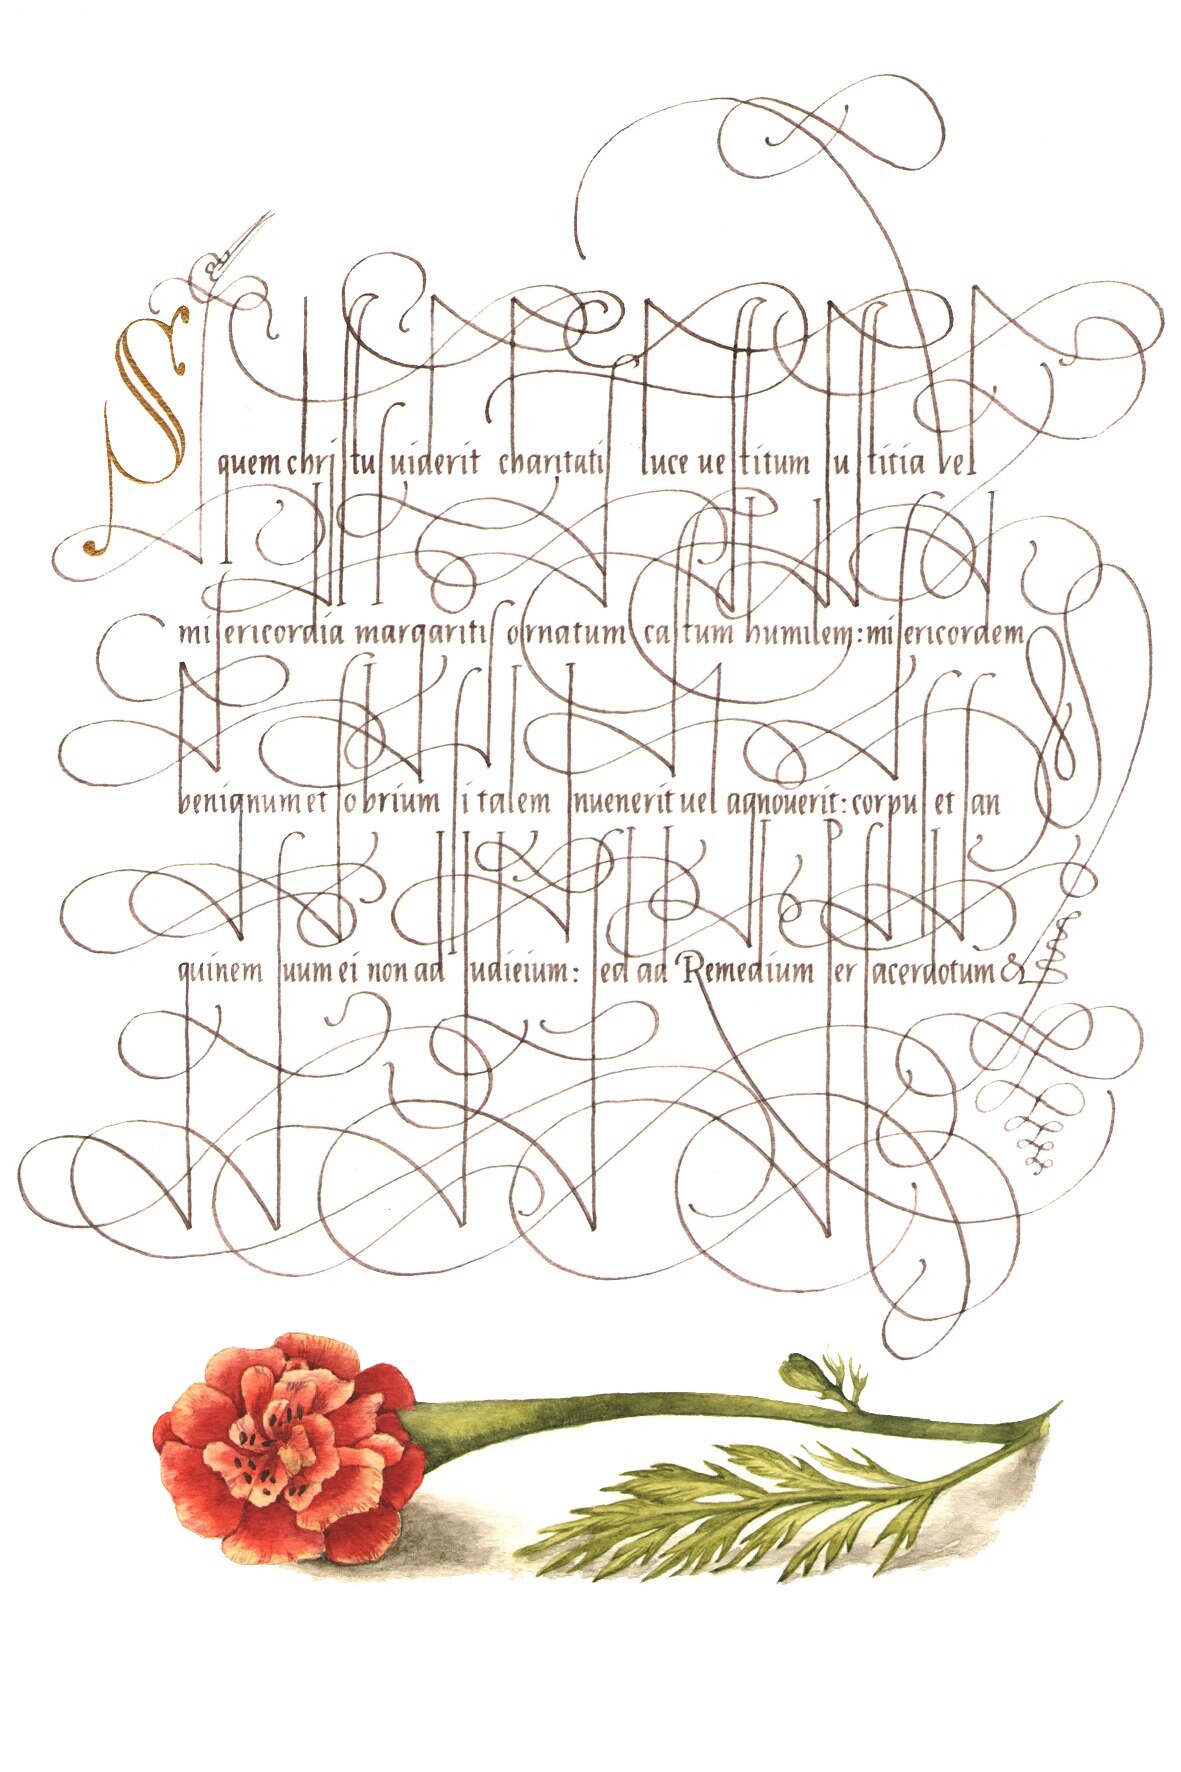 Si quem christus viderit charitatis luce vestitum iustitia vel
misericordia margaritis ornatum castum humilem: misericordem
benignum et sobrium si talem invenerit vel agnoverit: corpus et san
guinem suum ei non ad iudieium: sed ad Remedium per sacerdotum &